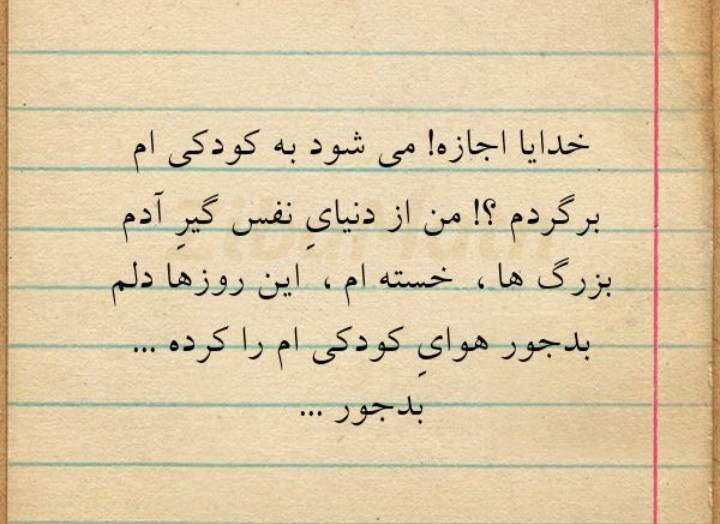 خدایا اجازه! می شود به کودکی ام
برگردم ؟! من از دنیایِ نفس گیرِ آدم
بزرگ ها ، خسته ام ، این روزها دلم
بدجور هوایِ کودکی ام را کرده ...
بدجور ...